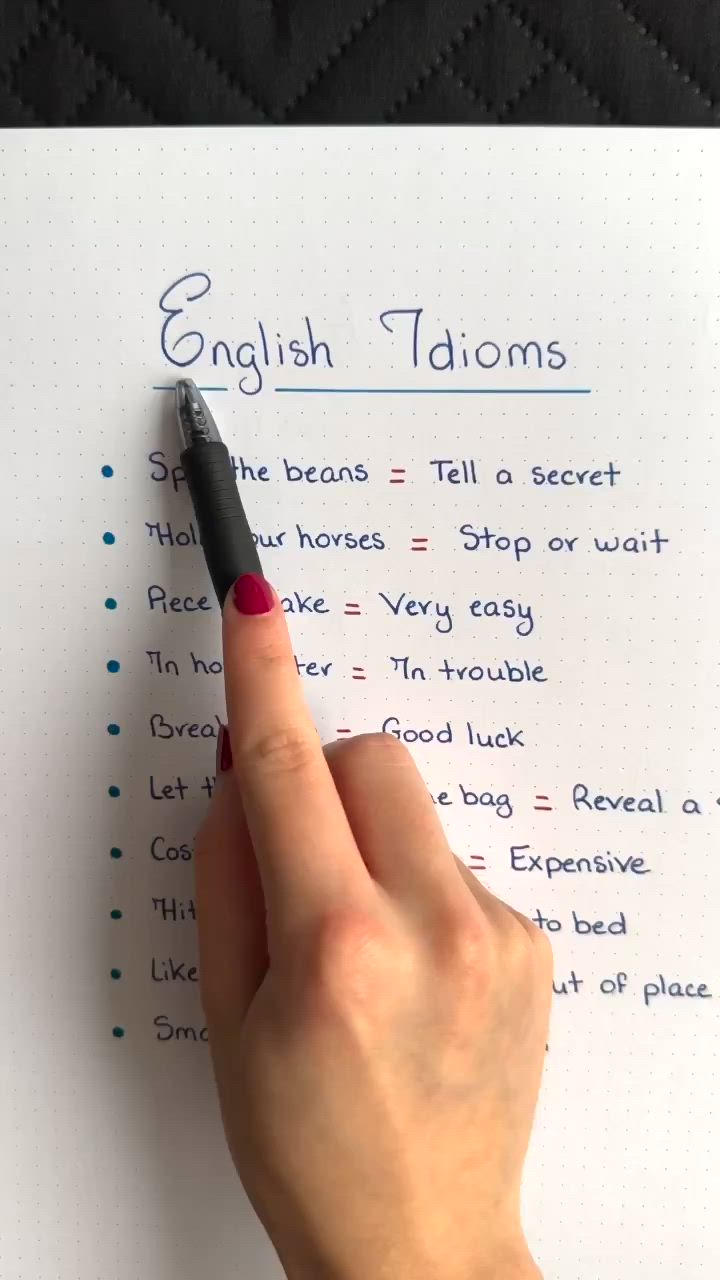 English Idioms
Sp the beans = Tell a secret
Hol our horses = Stop or wait
Piece ake = Very easy
In ho ter = In trouble
Brea = Good luck
Let t e bag = Reveal a
Cos = Expensive
Hit to bed
Like ut of place
Sma